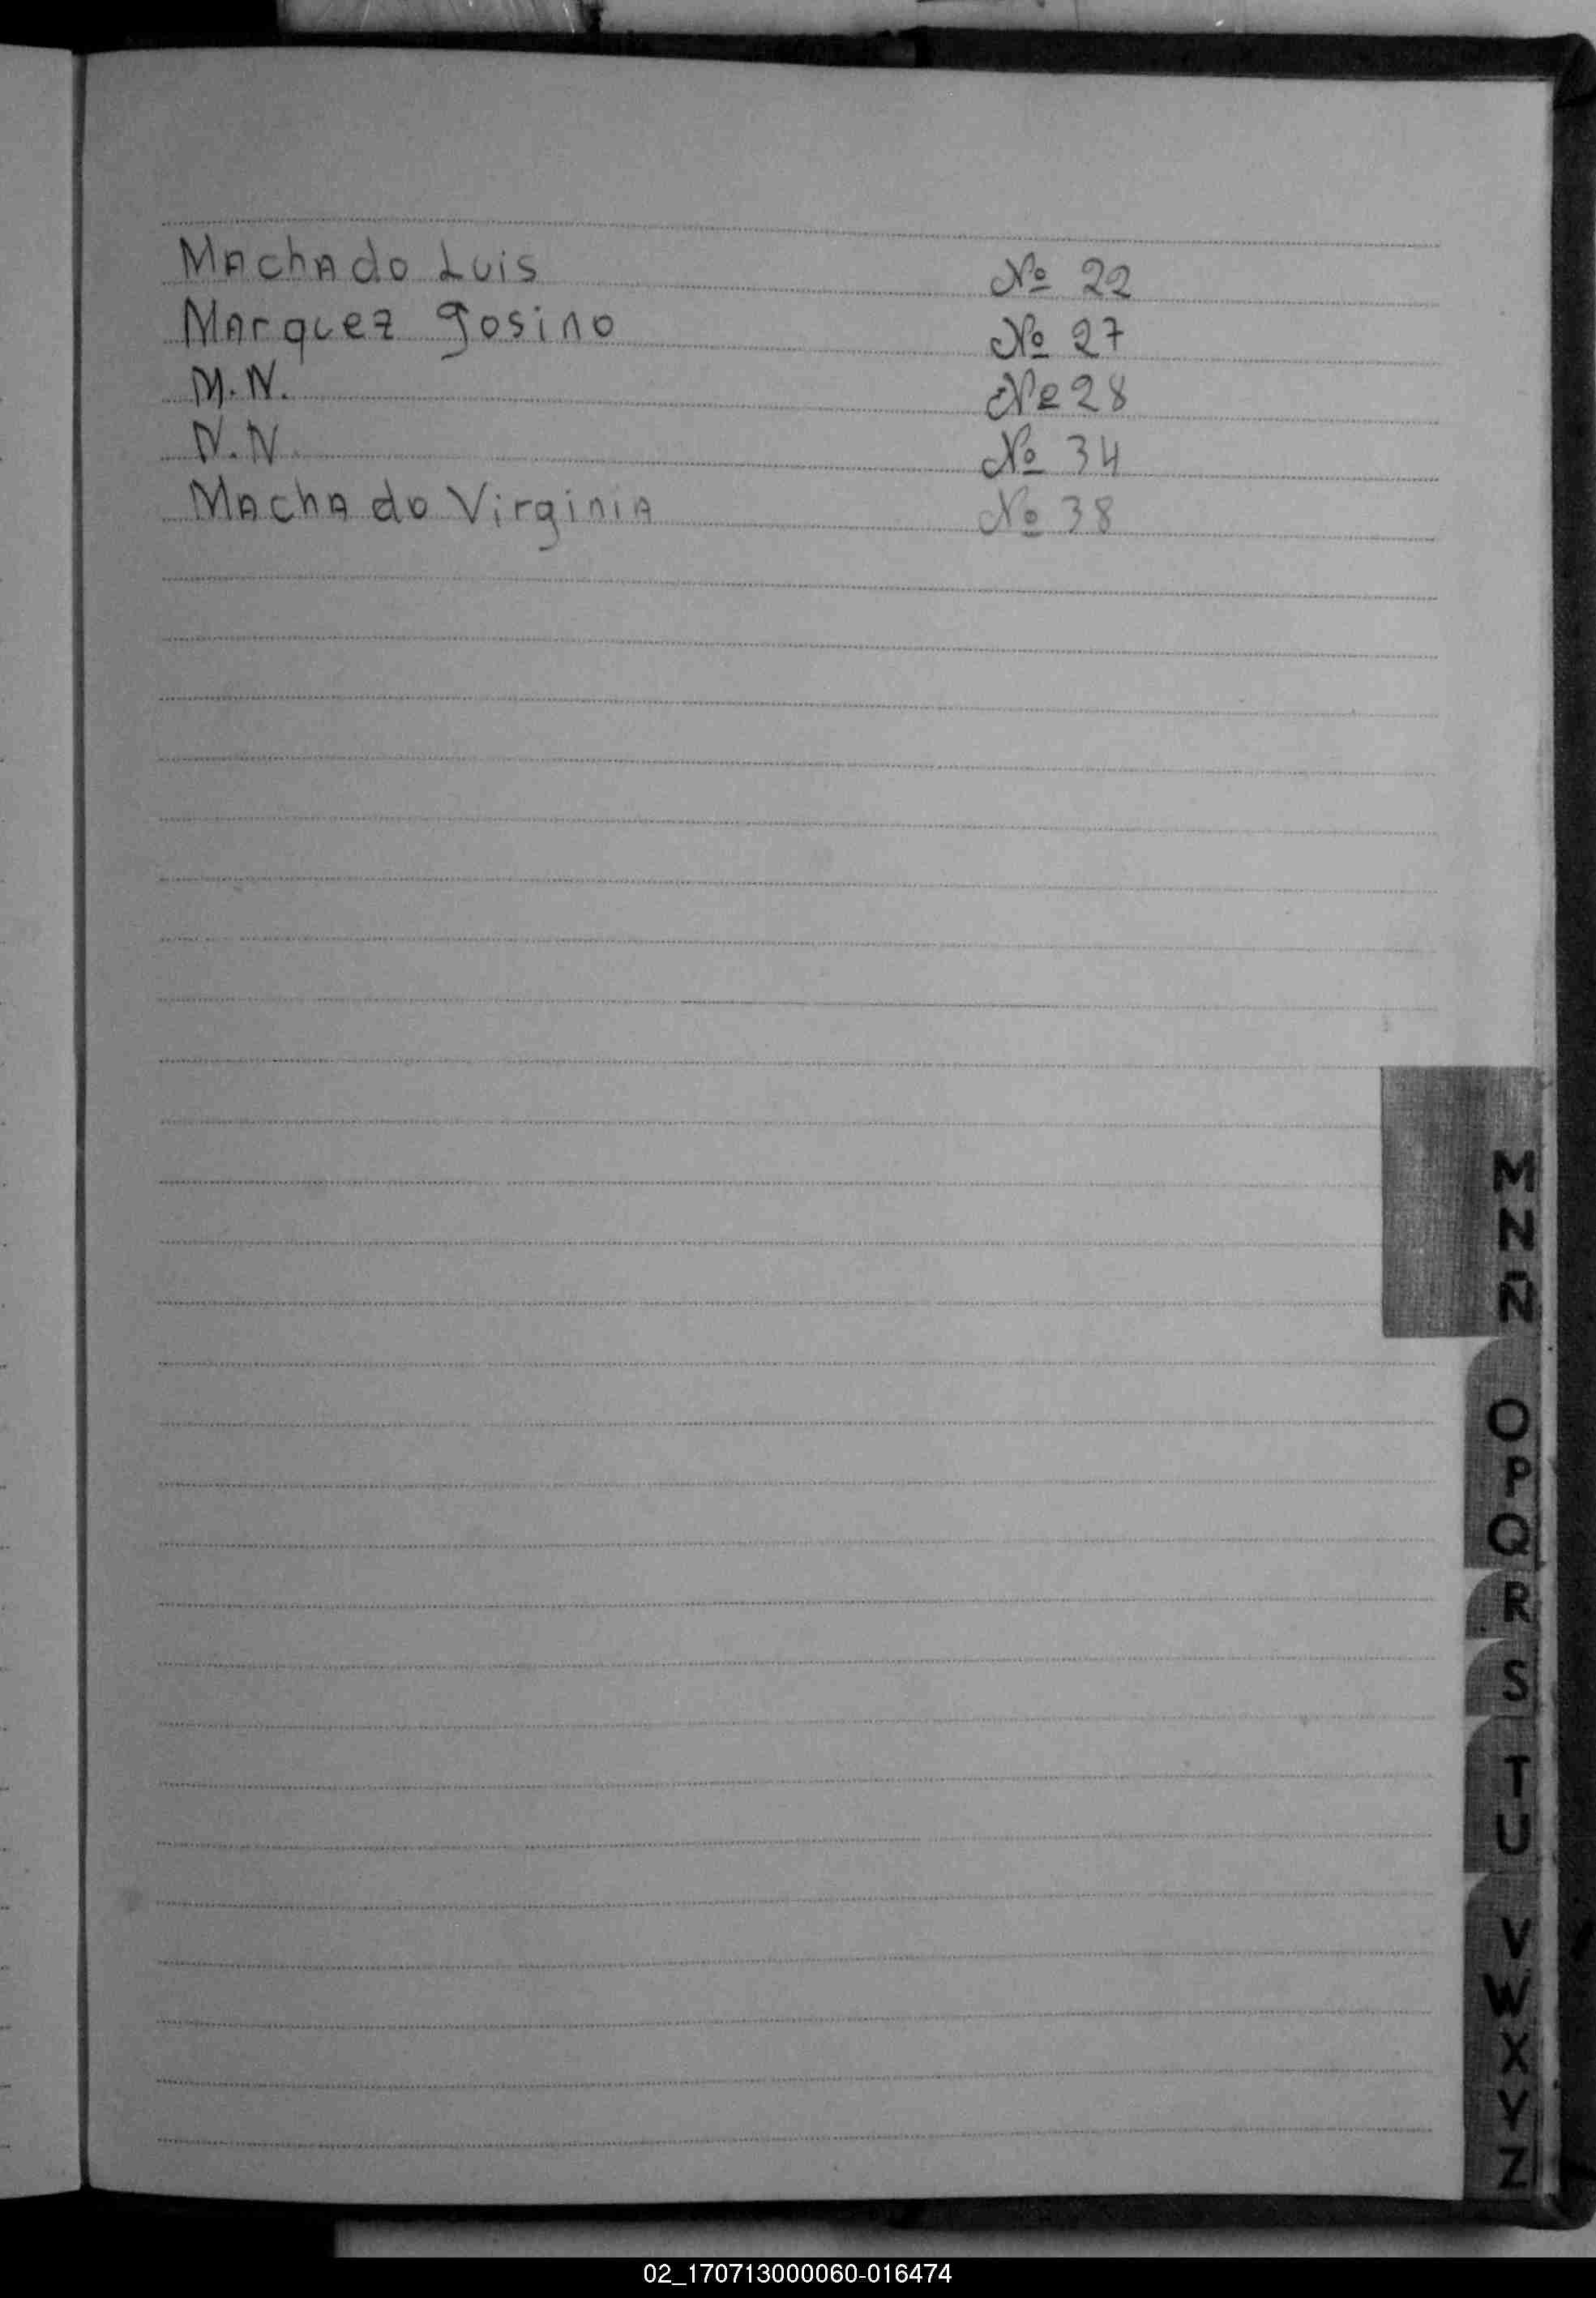 Machado Luis Nº 22
Marquez Josino Nº 27
M.N. Nº 28
N.N. Nº 34
Machado Virginia Nº 38
M
N
Ñ
O
P
Q
R
S
T
U
V
W
X
Y
Z
02_170713000060-016474